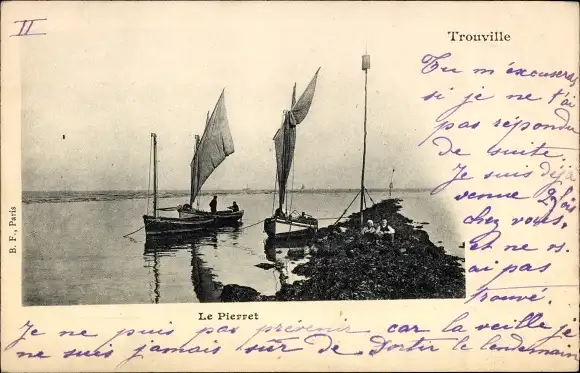 II
Trouville
Tu m'éxcuseras
si je ne t'ai
pas répondu
de suite.
Je suis déjà
venue 2 fois
chez vous,
et ne vs.
ai pas
trouvé.
B. F., Paris
Le Pierret
Je ne puis pas prévenir car la veille je
ne suis jamais sûr de sortir le lendemain